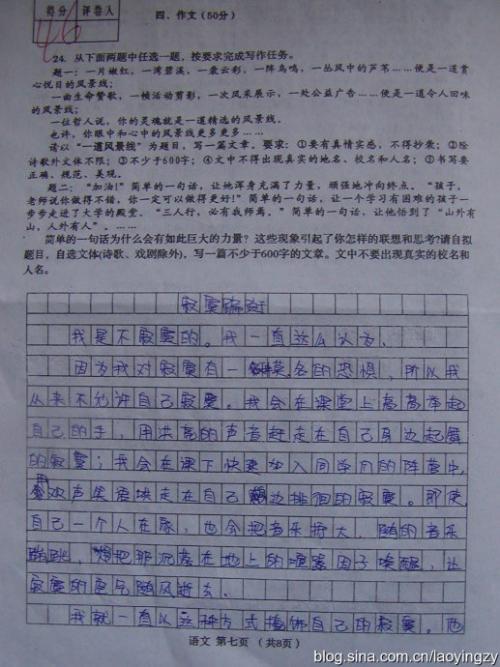 得分 评卷人
46
四、作文(50分)
24. 从下面两题中任选一题，按要求完成写作任务。
题一：一片嫩红，一湾碧溪，一袭云彩，一阵鸟鸣，一丛风中的芦苇……便是一道赏
心悦目的风景线；
一曲生命赞歌，一帧活动剪影，一次风采展示，一处公益广告……便是一道令人回味
的风景线；
一位哲人说，你的灵魂就是一道精选的风景线。
也许，你眼中和心中的风景线更多更多……
请以“一道风景线”为题目，写一篇文章。要求：①要有真情实感，不得抄袭；②除
诗歌外文体不限；③不少于600字；④文中不得出现真实的地名、校名和人名；⑤书写要
正确、规范、美观。
题二：“加油!”简单的一句话，让他浑身充满了力量，顽强地冲向终点。“孩子，
老师说你做得不错，你一定可以做得更好!”简单的一句话，让一个学习有困难的孩子一
步步走进了大学的殿堂。“三人行，必有我师焉。”简单的一句话，让他悟到了“山外有
山，人外有人”。……
简单的一句话为什么会有如此巨大的力量？这些现象引起了你怎样的联想和思考?请自拟
题目，自选文体(诗歌、戏剧除外)，写一篇不少于600字的文章。文中不要出现真实的校名和
人名。
寂寞
我是不寂寞的。我一直这么认为。
因为我对寂寞有一种莫名的恐惧，所以我
从来不允许自己寂寞。我会在课堂上高高举起
自己的手，用洪亮的声音赶走在自己身边起舞
的寂寞；我会在课下快速加入同学们的阵营中，
欢声笑语块走在自己边徘徊的寂寞。即使
自己一个人在家，也会把音乐放大，随的音乐
跳，把那沉落在地上的喧嚣因子唤醒，让
寂寞的气随风逝去。
我就一直以这种方式掩饰自己的寂寞。
语文 第七页 （共8页）
blog.sina.com.cn/laoyingzy